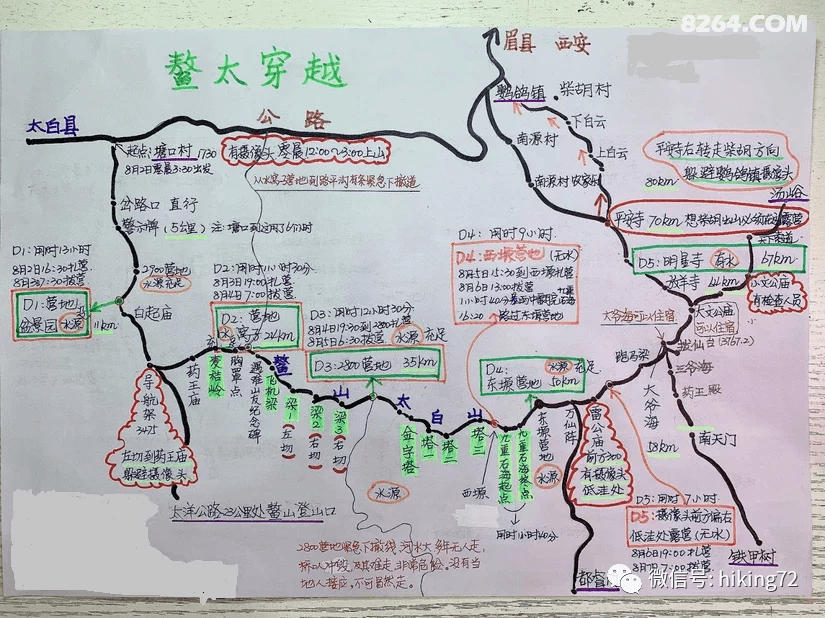 8264.COM
鳌太穿越
眉县 西安
公路
太白县
鹦鸽镇
柴胡村
下白云
南源村
上白云
起点:塘口村 1730
8月2日零晨3:30出发
有摄像头零晨12:00~3:00上山
平安寺左转走柴胡方向
躲避鹦鸽镇摄像头
80km
汤峪
岔路口 直行
警示牌(5公里)
平安寺 70km
D1:用时13小时
8月2日16:30扎营
8月3日7:30拔营
2900营地
水源充足
D1:营地1
盆景园 水源
11km
白起庙
D2:用时11小时30分
8月3日19:00扎营
8月4日7:00拔营
D2:营地
24km
D3:用时12小时30分
8月4日19:30到2800扎营
水源充足
D3:2800营地 35km
D4:用时9小时
D4:西塬营地(无水)
8月5日15:30到西塬扎营
8月6日13:00拔营
16:20
路过东塬营地
D5:明星寺 有水 67km
放羊寺
大文公庙
可以住宿
小文公庙
有检查人员
大爷海可以住宿
拔仙台(3767.2)
跑马梁
三爷海
药王殿
大爷海
58km
南天门
铁甲树
D4:
东塬营地
水源充足
50km
导航架
3475
左切到药王庙
躲避摄像头
药王庙
麦秸岭
遇难山友纪念碑
鳌山太白山
飞机梁
梁1(左切)
梁2(右切)
梁3(右切)
金字塔
塔一
塔二
塔三
西塬
九重石海起点
九重石海终点
用时1小时40分
东塬营地
水源
万仙阵
雷公庙
前方300
有摄像头
低洼处
水源
太洋公路23公里处鳌山登山口
2800营地紧急下撤线
河水大
常年无人走,
桥口冲毁,及其难走,非常危险。没有当
地人接应,不可冒然走。
D5:用时7小时
D5:摄像头前方偏右
低洼处露营(无水)
8月6日19:00扎营
8月7日7:00拔营
都督
微信号: hiking72